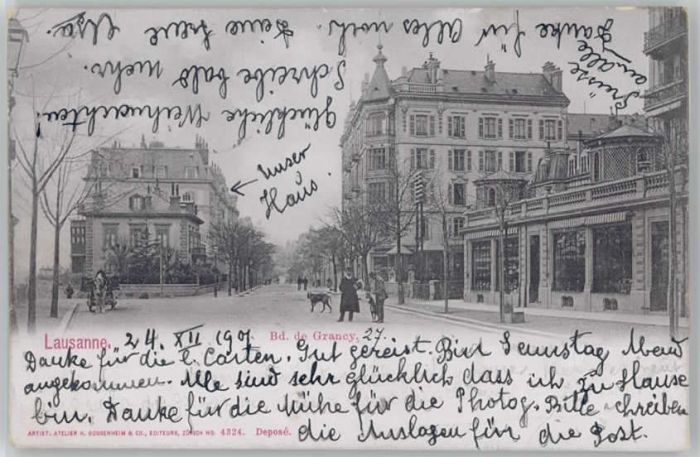 Glückliche Weihnachten!
Schreibe bald mehr.
Danke für Alles noch. Deine treue Elsa.
Grüsse an alle
Unser Haus.
Lausanne. 24. XII 1901 Bd. de Grancy, 27.
Danke für die l. Carten. Gut gereist. Bin Samstag Abend
angekommen. Alle sind sehr glücklich dass ich zu Hause
bin. Danke für die Mühe für die Photog. Bitte schreiben
die Auslagen für die Post.
ARTIST. ATELIER H. GUGGENHEIM & CO., EDITEURS, ZÜRICH NO. 4324. Deposé.